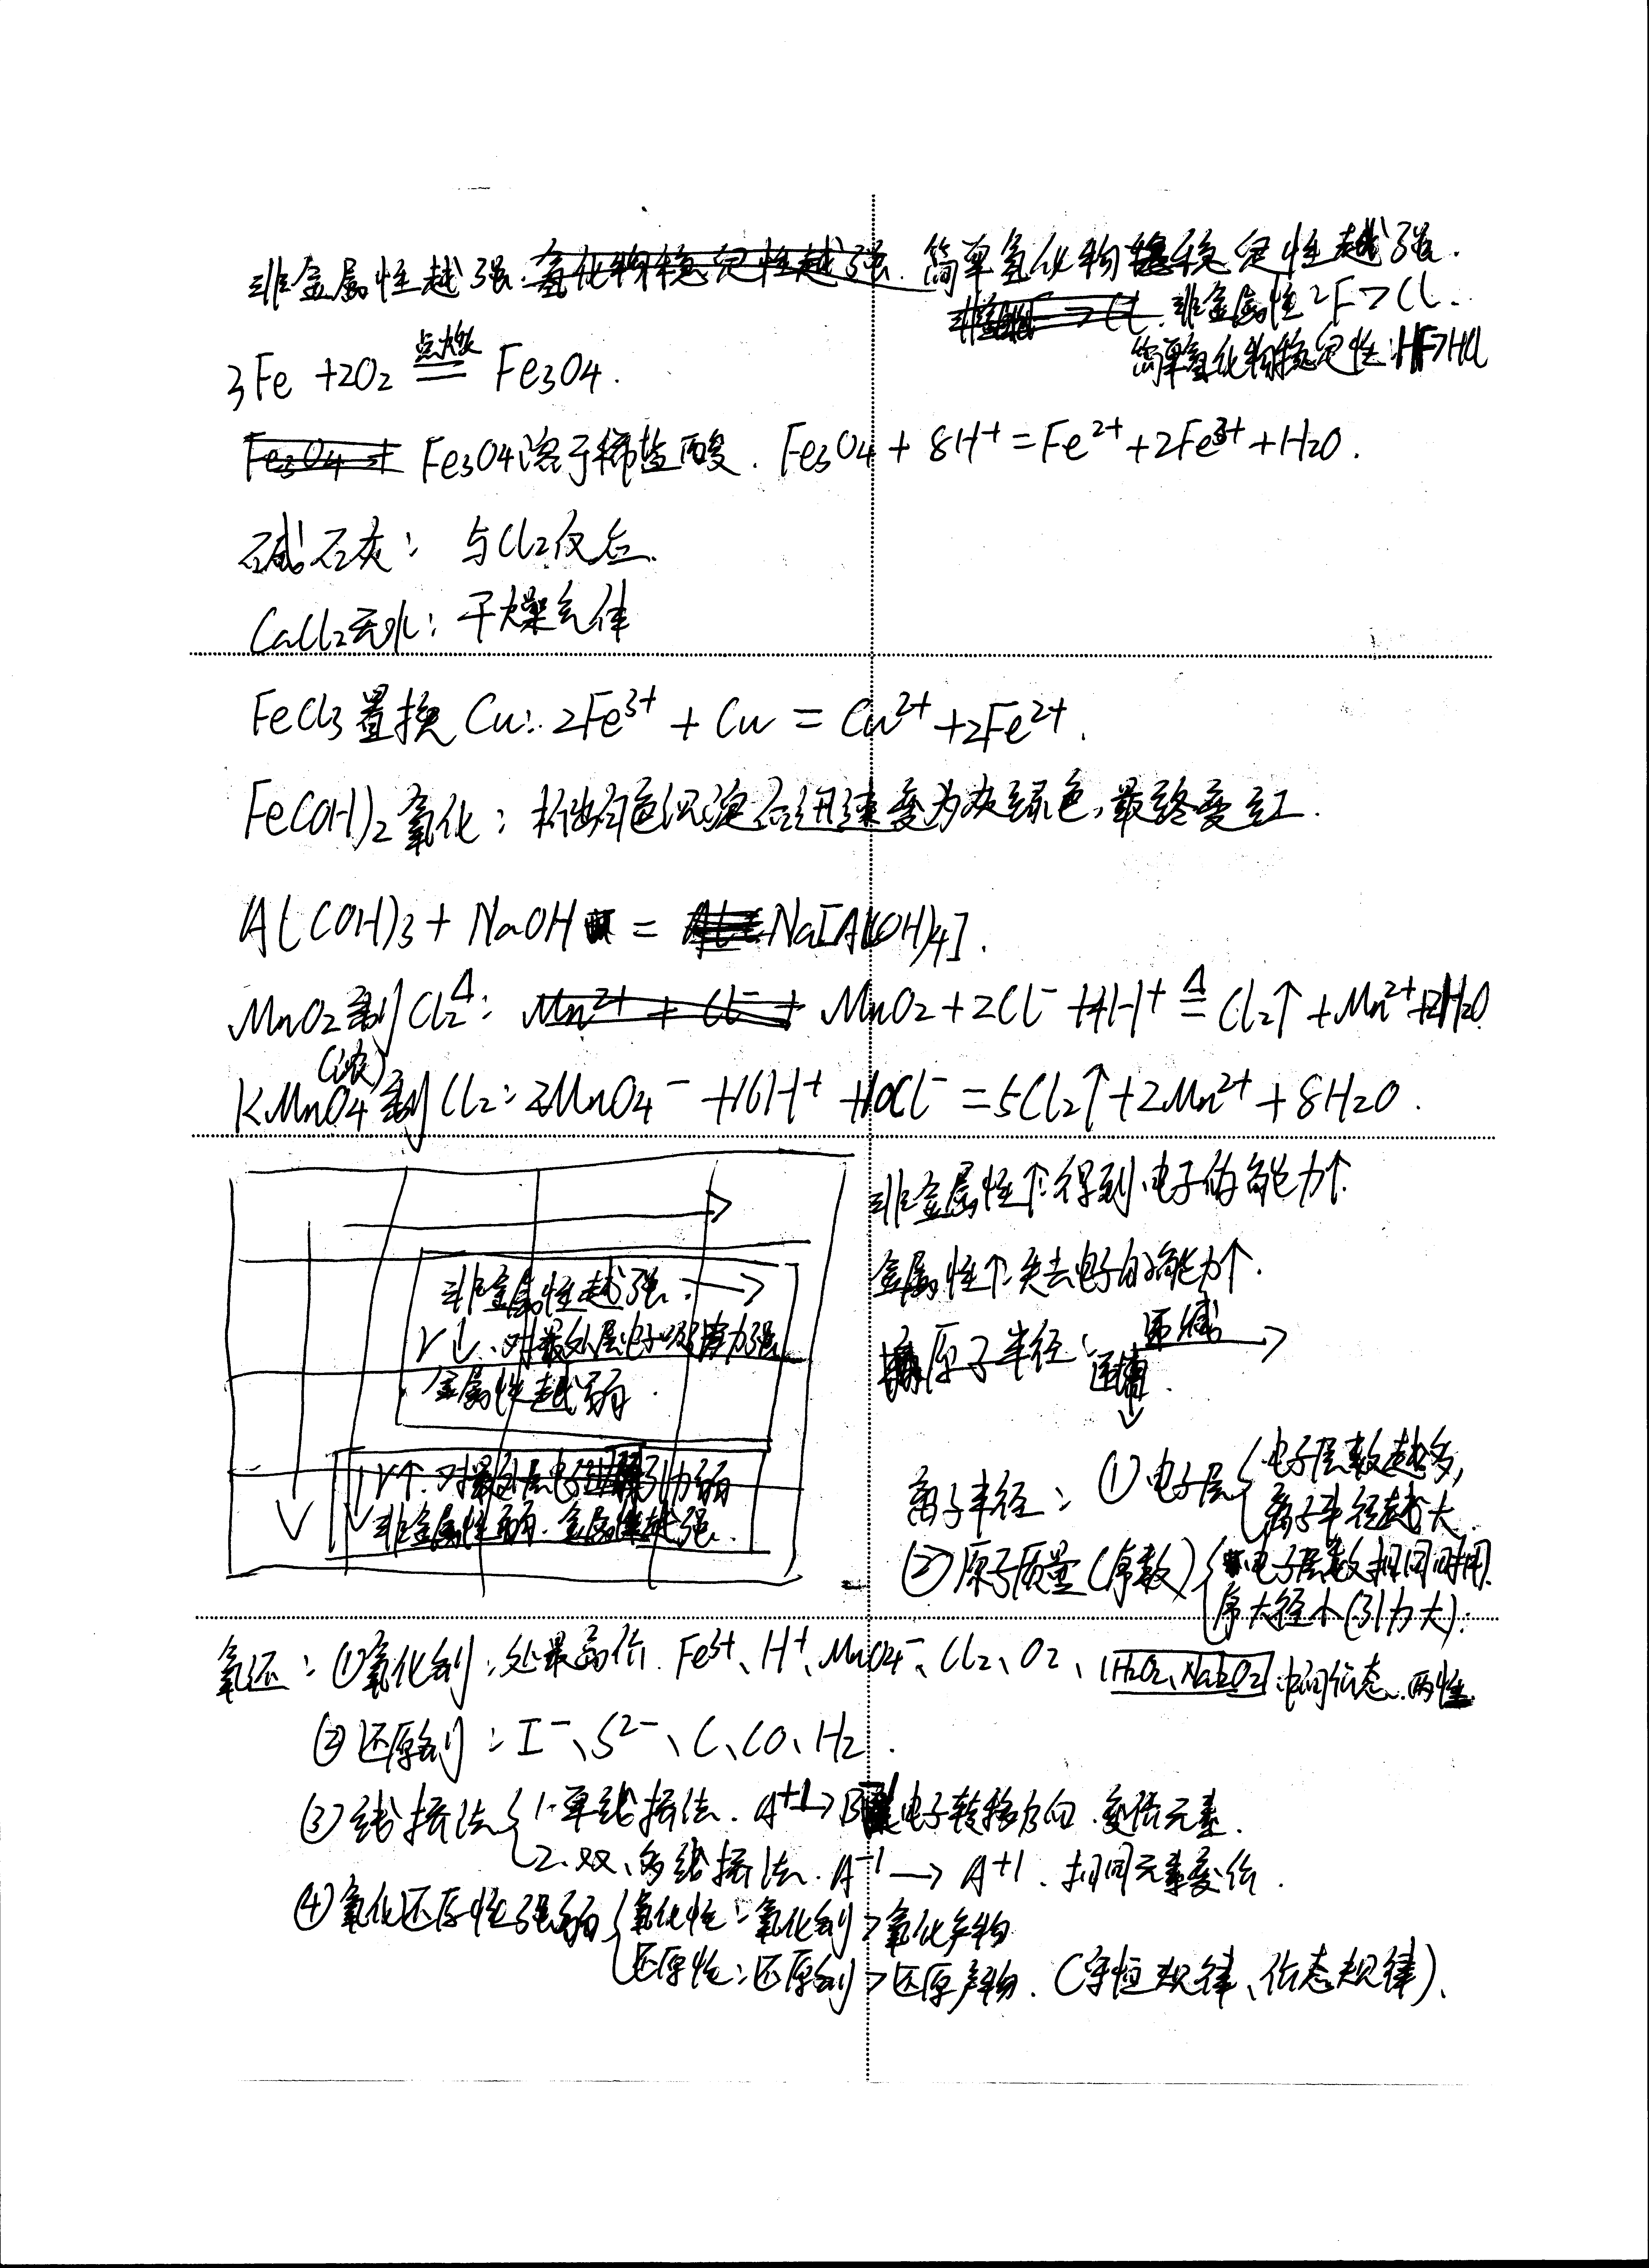 非金属性越强.简单氢化物稳定性越强.
非金属性:F>Cl.
简单氢化物稳定性:HF>HCl
3Fe+2O₂ 点燃══ Fe₃O₄.
Fe₃O₄溶于稀盐酸. Fe₃O₄+8H⁺=Fe²⁺+2Fe³⁺+H₂O.
碱石灰: 与Cl₂反应.
CaCl₂无水: 干燥气体
FeCl₃置换Cu: 2Fe³⁺+Cu=Cu²⁺+2Fe²⁺.
Fe(OH)₂氧化: 析出白色沉淀后迅速变为灰绿色,最终变红.
Al(OH)₃+NaOH=Na[Al(OH)₄].
MnO₂制Cl₂ Δ: MnO₂+2Cl⁻+4H⁺ ≜ Cl₂↑+Mn²⁺+2H₂O
(浓)
KMnO₄制Cl₂: 2MnO₄⁻+16H⁺+10Cl⁻=5Cl₂↑+2Mn²⁺+8H₂O.
非金属性越强. →
r↓.对最外层电子吸引力强
金属性越弱.
r↑.对最外层电子引力弱
非金属性弱.金属性越强.
非金属性↑:得到电子的能力↑.
金属性↑:失去电子的能力↑.
原子半径: 递减→
递增↓
离子半径: ①电子层{电子层数越多,
离子半径越大.
②原子质量(序数){电子层数相同时用.
序大径小(引力大).
氧还: ①氧化剂:处最高价. Fe³⁺、H⁺、MnO₄⁻、Cl₂、O₂、(H₂O₂、Na₂O₂):中间价态.两性
②还原剂: I⁻、S²⁻、C、CO、H₂.
③线接法{1.单线接法. A⁺¹→B 电子转移方向.变价元素.
2.双、多线接法. A⁻¹→A⁺¹.相同元素变价.
④氧化还原性强弱{氧化性:氧化剂>氧化产物
还原性:还原剂>还原产物.(守恒规律、价态规律).